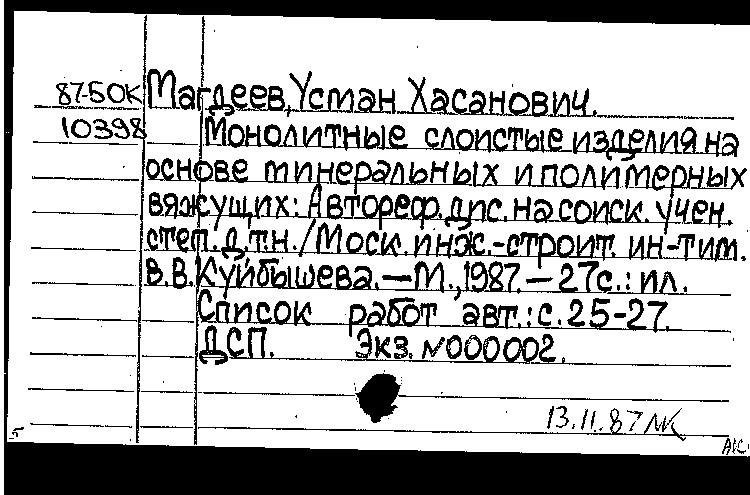 87-50K Магдеев, Усман Хасанович.
10398 Монолитные слоистые изделия на
основе минеральных и полимерных
вяжущих: Автореф. дис. на соиск. учен.
степ. д.т.н. / Моск. инж.-строит. ин-т им.
В.В. Куйбышева. — М., 1987. — 27с.: ил.
Список работ авт.: с. 25-27.
ДСП. Экз. N000002.
13.11.87